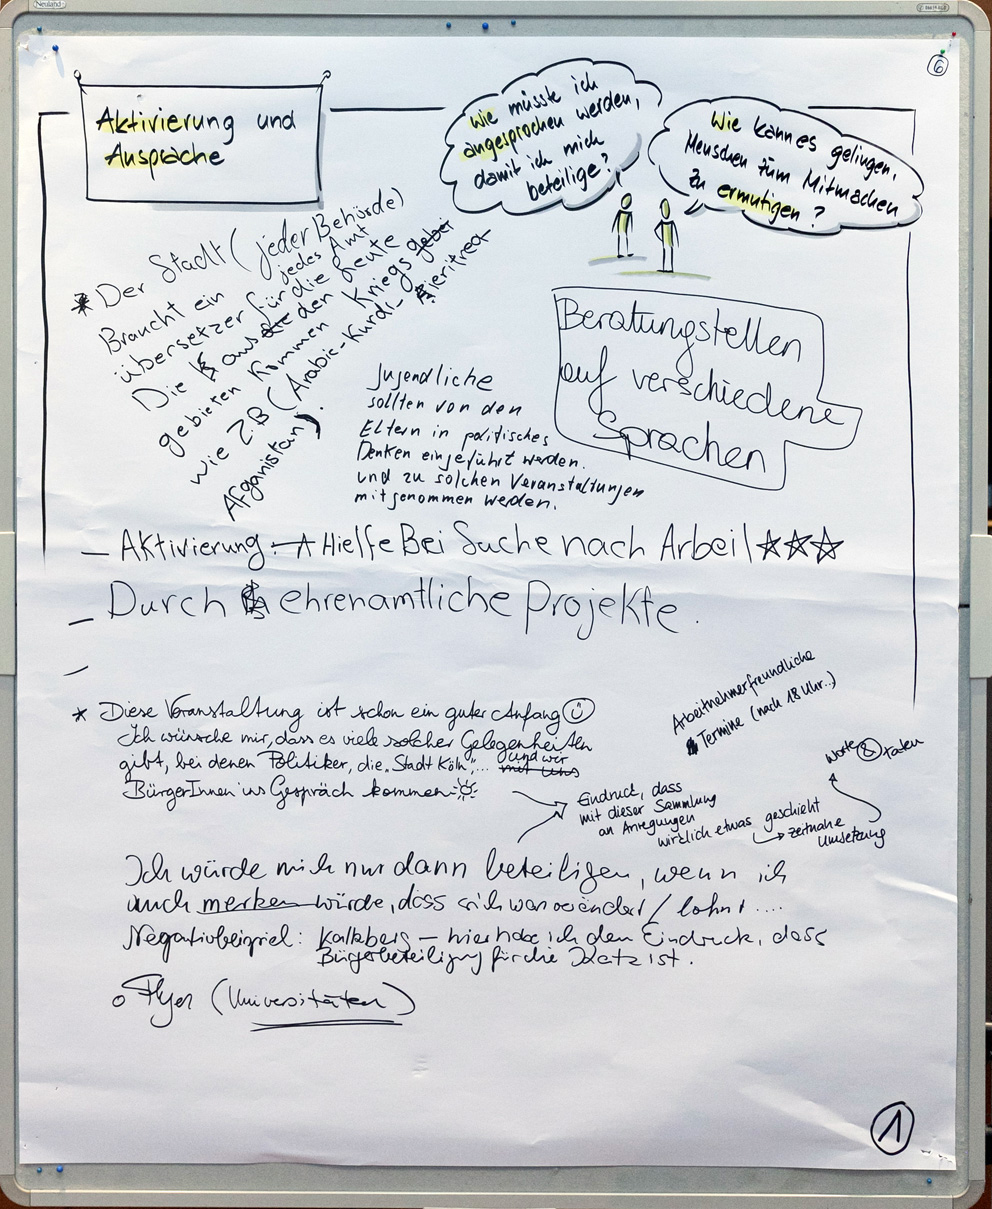 Neuland
6
Aktivierung und
Ansprache
Wie müsste ich
angesprochen werden,
damit ich mich
beteilige?
Wie kann es gelingen,
Menschen zum Mitmachen
zu ermutigen?
* Der Stadt (jeder Behörde)
jedes Amt
Braucht ein
übersetzer für die Leute
Die aus den Kriegs
gebieten kommen
wie z.B (Arabic-Kurdi-Aieritrea
Afganistan).
Beratungstellen
auf verschiedene
Sprachen
Jugendliche
sollten von den
Eltern in politisches
Denken eingeführt werden.
und zu solchen Veranstaltungen
mitgenommen werden.
– Aktivierung: Hielfe Bei Suche nach Arbeit ☆☆☆
– Durch ehrenamtliche Projekte.
–
Arbeitnehmerfreundliche
Termine (nach 18 Uhr..)
* Diese Veranstaltung ist schon ein guter Anfang ☺
Ich wünsche mir, dass es viele solcher Gelegenheiten
gibt, bei denen Politiker, die „Stadt Köln",... und wir
mit uns
BürgerInnen ins Gespräch kommen
Worte & Taten
Eindruck, dass
mit dieser Sammlung
an Anregungen
wirklich etwas geschieht
→ zeitnahe
Umsetzung
Ich würde mich nur dann beteiligen, wenn ich
auch merken würde, dass sich was verändert / lohnt ....
Negativbeispiel: Kalkberg – hier habe ich den Eindruck, dass
Bürgerbeteiligung für die Katz ist.
o Flyer (Universitäten)
1